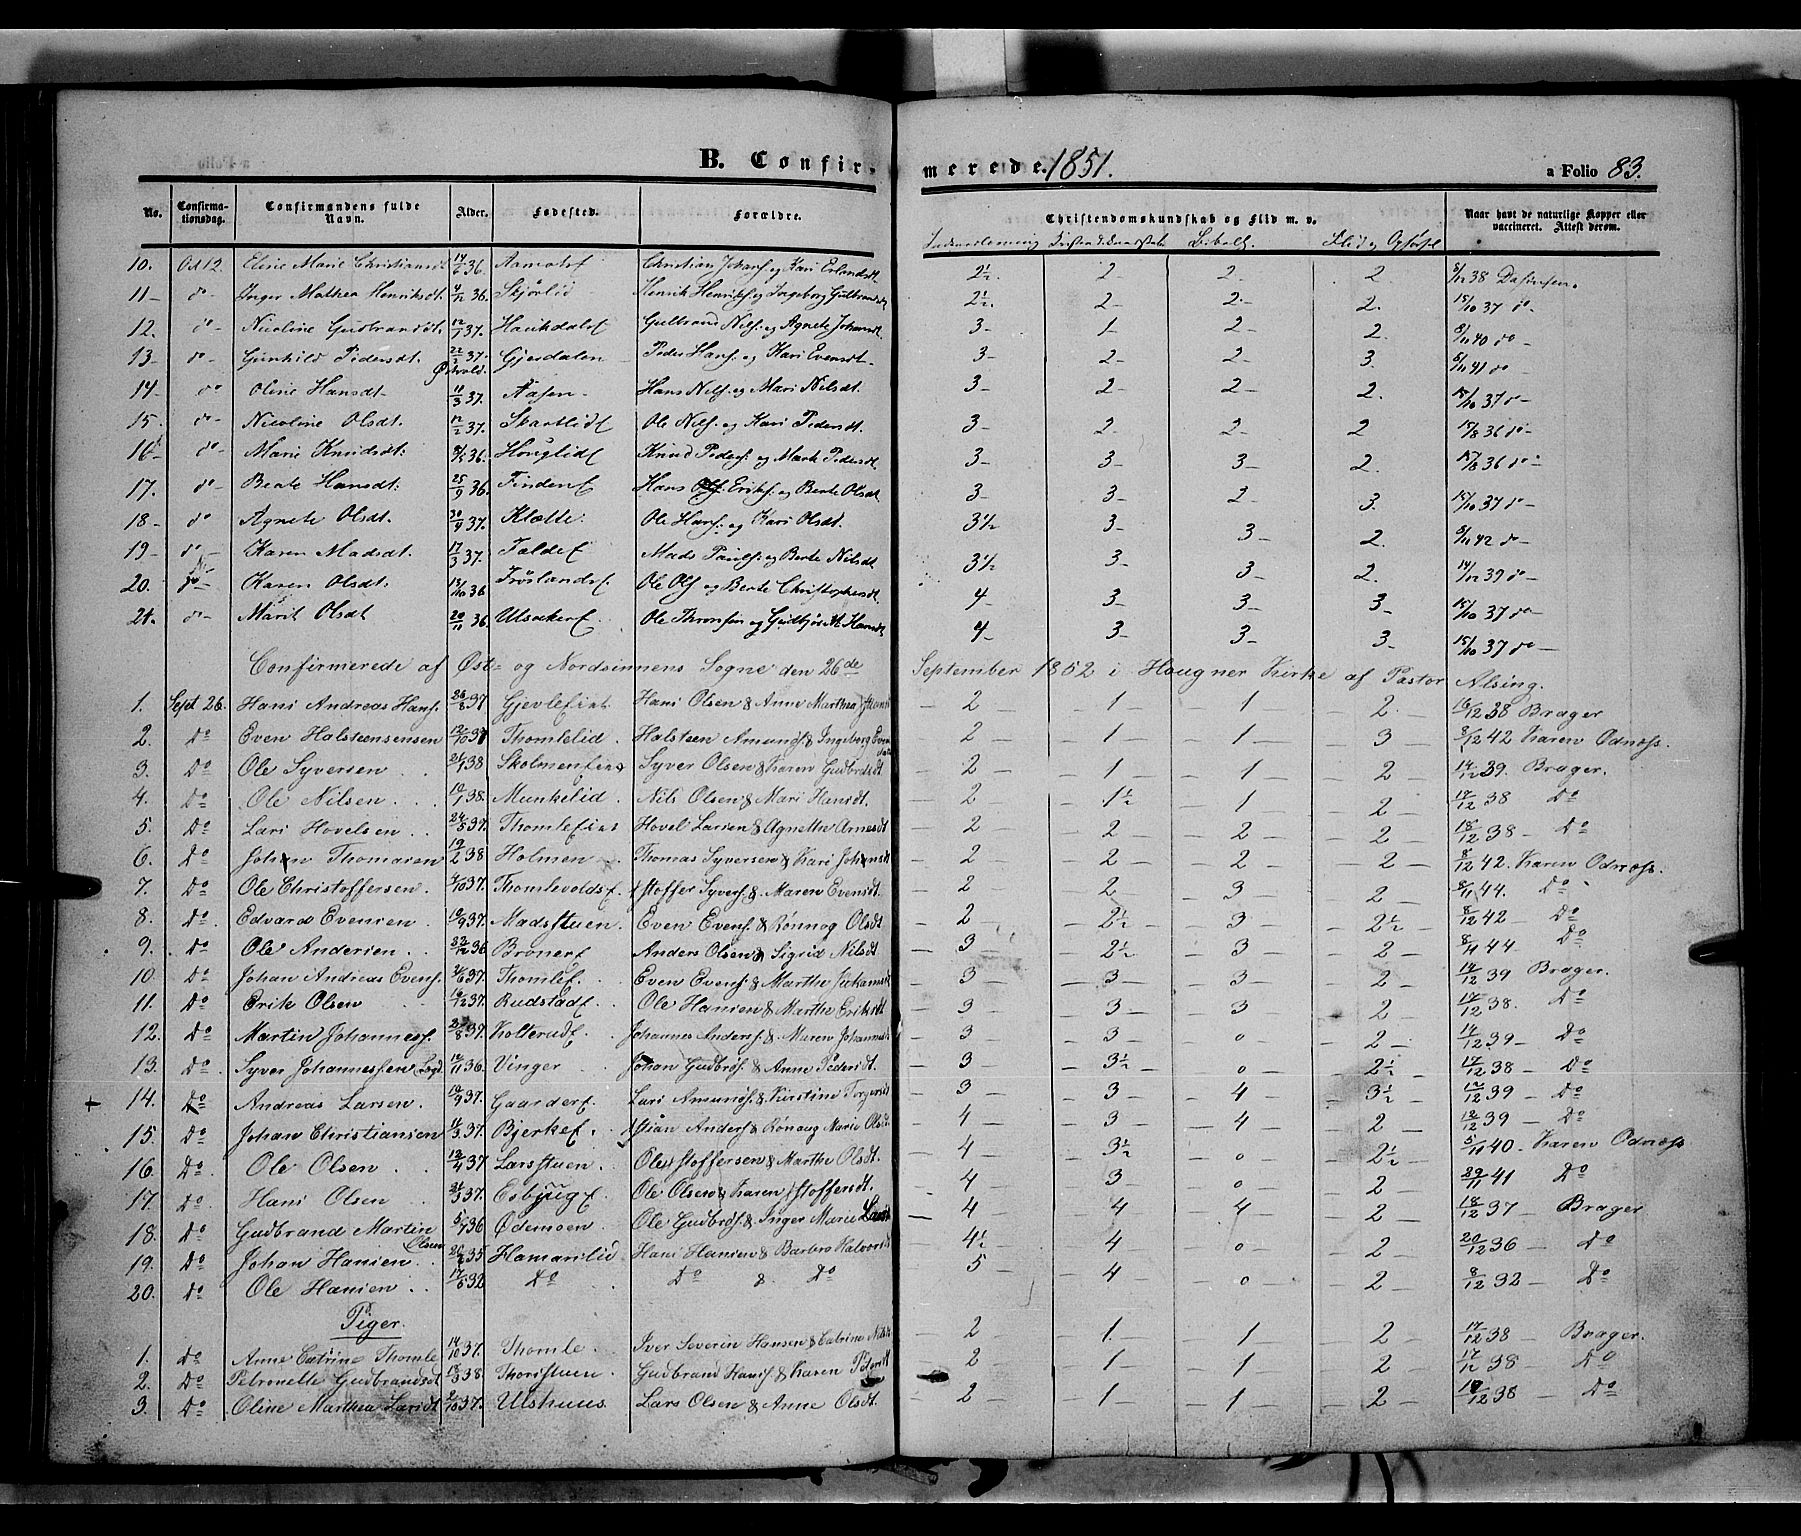 B. Confirmerede. 1851. a Folio 83.
No. Confirmationsdag. Confirmandens fulde Navn. Alder. Fødested. Forældre. Christendomskundskab og Flid m. v. Naar havt de naturlige Kopper eller vaccineret. Attest derom.
Flid og Opførsel
10. Oct 12. Eline Marie Christiansdt 14/5 36. Christian Johans. og Kari Erlandsdt 2½ 2 2 2 8/12 38
11 do Inger Mathea Henriksdt. 4/12 36. Skjørlid Henrik Henriks. og Ingeborg Gulbrandsdt 2½ 2 2 2. 15/10 37 do
12. do Nicoline Gudbrandsdt. 12/1 37. Haukdalsf Gulbrand Nils. og Agnete Johansdt. 3 1 2 2. 8/11 40 do
13 do Gunhild Pedersdt. 22/2 37. Gjerdalen Peder Hans. og Kari Evensdt 3 2 2 3. 8/11 41 do
14 do Oline Hansdt 11/3 37. Aasen Hans Nils. og Mari Nilsdt. 3 2 2 2. 15/10 37 do
15. do Nicoline Olsdt. 12/2 37. Skartlidf Ole Nils. og Kari Pedersdt. 3 2 2 2 15/8 36 do
16 do Marie Knudsdt. 36. Houglidf Knud Peders. og Marte Pedersdt 3 3 3 2. 15/8 36 do
17. do Beate Hansdt. 25/9 36. Findenf Hans Eriks. og Berte Olsdt. 3 3 2 3. 15/10 37 do
18 do Agnete Olsdt. 30/4 37. Klætte Ole Hans. og Kari Olsdt. 3½ 3 3 2. 8/11 42 do
19 do Karen Madsdt. 17/3 37. Faldef Mads Pauls. og Berte Nilsdt 3½ 3 3 2. 14/12 39 do
20. do Karen Olsdt. 36 Frøslandsf. Ole Ols. og Berte Christophersdt. 4 3 3 3 15/10 37 do
21. do Marit Olsdt 20/11 36. Ulsakerf. Ole Thronsen og Gudbjør M. Hansdt 4 3 3 3. 15/10 37 do
Confirmerede af Øst- og Nordsinnens Sogne den 26de September 1852 i Hougner Kirke af Pastor Alsing.
1. Sept 26. Hans Andreas Hans. 26/8 37 Gjevlefins. Hans Olsen & Anne Marthea 2 1 1 2. 16/12 38 Brager
2. Do Even Halsteensensen 12/10 37 Thomlelid. Halsteen Amunds. & Ingeborg Evensdatr 2 1 1 3 8/12 42 Karen Odnæss.
3. Do Ole Syversen 38 Skolmenfins Syver Olsen & Karen Gudbrdsdt 2 1 1 2 14/12 39. Brager.
4. Do Ole Nilsen 10/1 38. Munkelid. Nils Olsen & Mari Hansdt. 2 1½ 1 2 17/12 38 Do
5. Do Lars Hovelsen 24/5 37. Thomlefins Hovel Larsen & Agnethe Arnesdt 2 2 2 2 18/12 38 Do
6. Do Johan Thomasen 19/2 38 Holmen Thomas Syversen & Kari Johansdt 2 2 2 2 8/12 42. Karen Odnæss.
7. Do Ole Christoffersen 4/10 37. Thomlevoldsf. Xstoffer Syvers. & Maren Evensdt. 2 2 3 2 8/11 44. Do
8. Do Edvard Evensen 10/9 37. Madsstuen. Even Evens. & Rønnog Olsdt 2 2½ 3 2½ 8/12 42 Do
9. Do Ole Andersen 22/12 36 Bronerf Anders Olsen & Sigrid Nilsdt 3 2½ 3 2 8/11 44 Do
10. Do Johan Andreas Evens. 2/6 37. Thomlef. Even Evens. & Marthe 3 3 3 2 17/12 39 Brager.
11. Do Erik Olsen 37. Rudstadf. Ole Hansen & Marthe Eriksdt 3 3 3 2 17/12 38. Do
12. Do Martin Johanness. 37. Kolterudf. Johannes Anders. & Maren Johannesdt 3 3 0 2 17/12 39 Do
13. Do Syver Johannessen 12/11 36. Vinger Johan Gudbrds. & Anne Pedersdt 3 3½ 0 2½ 17/12 38 Do
14. Do Andreas Larsen. 19/9 37. Gaarderf. Lars Amunds. & Kirstine Torgersdt 3 3 4 3½ 12/12 39 Do
15. Do Johan Christiansen 37. Bjerkef. Xstian Anders. & Rønaug Marie Olsdt 4 3 4 2 12/12 39 Do
16. Do Ole Olsen 12/4 37 Larsstuen. Ole Xstoffersen & Marthe Olsdt. 4 3½ 0 2½ 5/11 40. Karen Odnæss
17. Do Hans Olsen 37. Esbjugf. Ole Olsen & Karen Xstoffersdt. 4 3 0 2 29/11 41 Do
18. Do Gudbrand Martin Olsen 5/7 36 Ødemoen Ole Gudbrds. & Inger Marie Larsdt 4 4 4 2 18/12 37 Brager
19. Do Johan Hansen 35 Hamarslid Hans Hansen & Barbro Halvorsdt 4½ 4 0 2 20/12 36 Do
20. Do Ole Hansen 17/6 32 Do Do & Do 5 4 0 2 8/12 32 Do
Piger.
1. Do Anne Catrine Thomle 14/10 37. Thomle. Iver Severin Hansen & Catrine Nilsdt 2 1 1 2 17/12 38 Brager.
2. Do Petronelle Gudbrandsdt 13/3 38. Thorsstuen. Gudbrand Hans. & Karen Pedersdt 2 1 1 2 17/12 38 Do
3. Do Oline Marthea Larsdt 2/10 37. Ulshuus Lars Olsen & Anne Olsdt. 2 1 1 2 10/12 38 Do